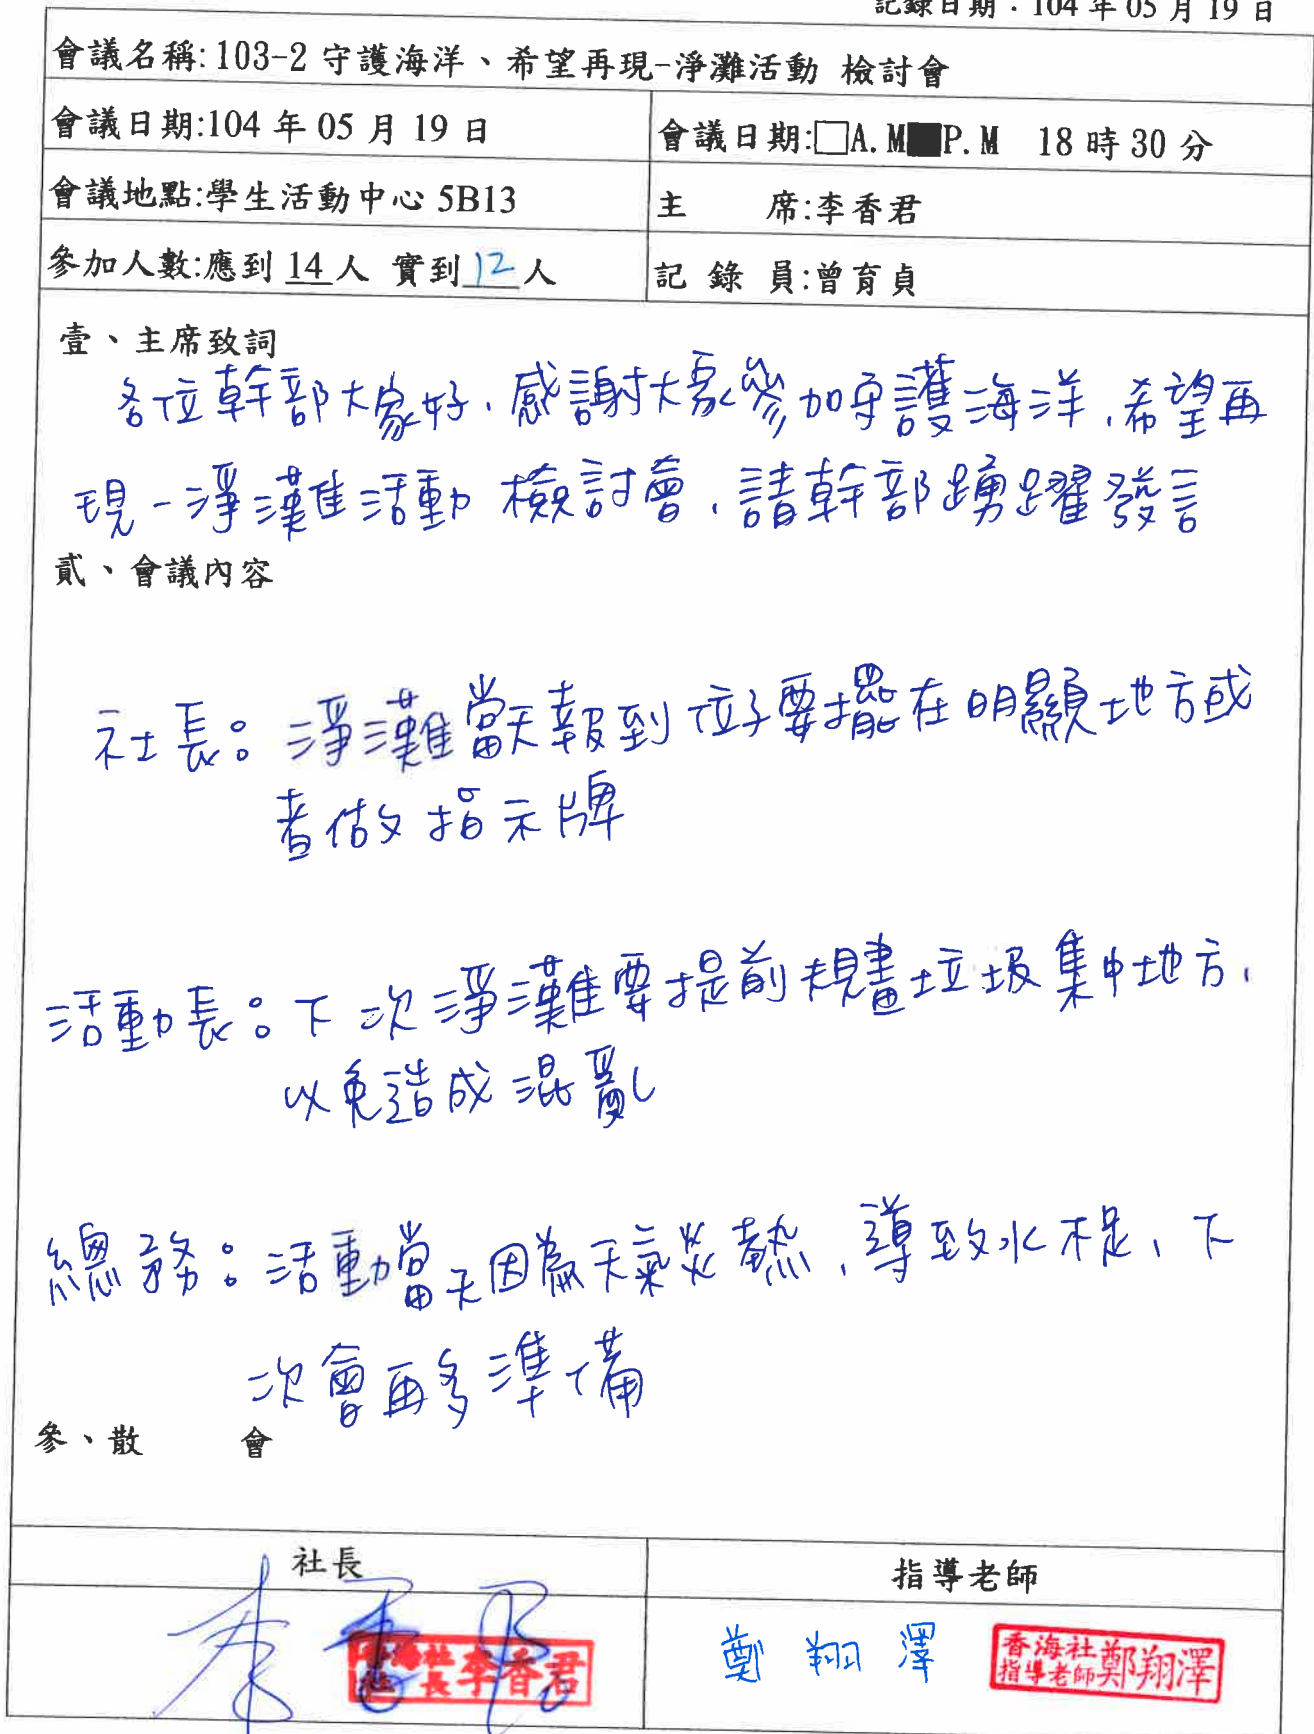 記錄日期：104 年 05 月 19 日
會議名稱:103-2 守護海洋、希望再現-淨灘活動 檢討會
會議日期:104 年 05 月 19 日
會議日期:□A.M■P.M 18 時 30 分
會議地點:學生活動中心 5B13
主 席:李香君
參加人數:應到 14 人 實到 12 人
記 錄 員:曾育貞
壹、主席致詞
各位幹部大家好，感謝大家參加守護海洋，希望再
現-淨灘活動 檢討會，請幹部踴躍發言
貳、會議內容
社長：淨灘當天報到位子要擺在明顯地方或
者做指示牌
活動長：下次淨灘要提前規畫垃圾集中地方，
以免造成混亂
總務：活動當天因為天氣炎熱，導致水不足，下
次會再多準備
參、散 會
社長
指導老師
李香君
社長李香君
鄭翔澤
香海社
指導老師鄭翔澤